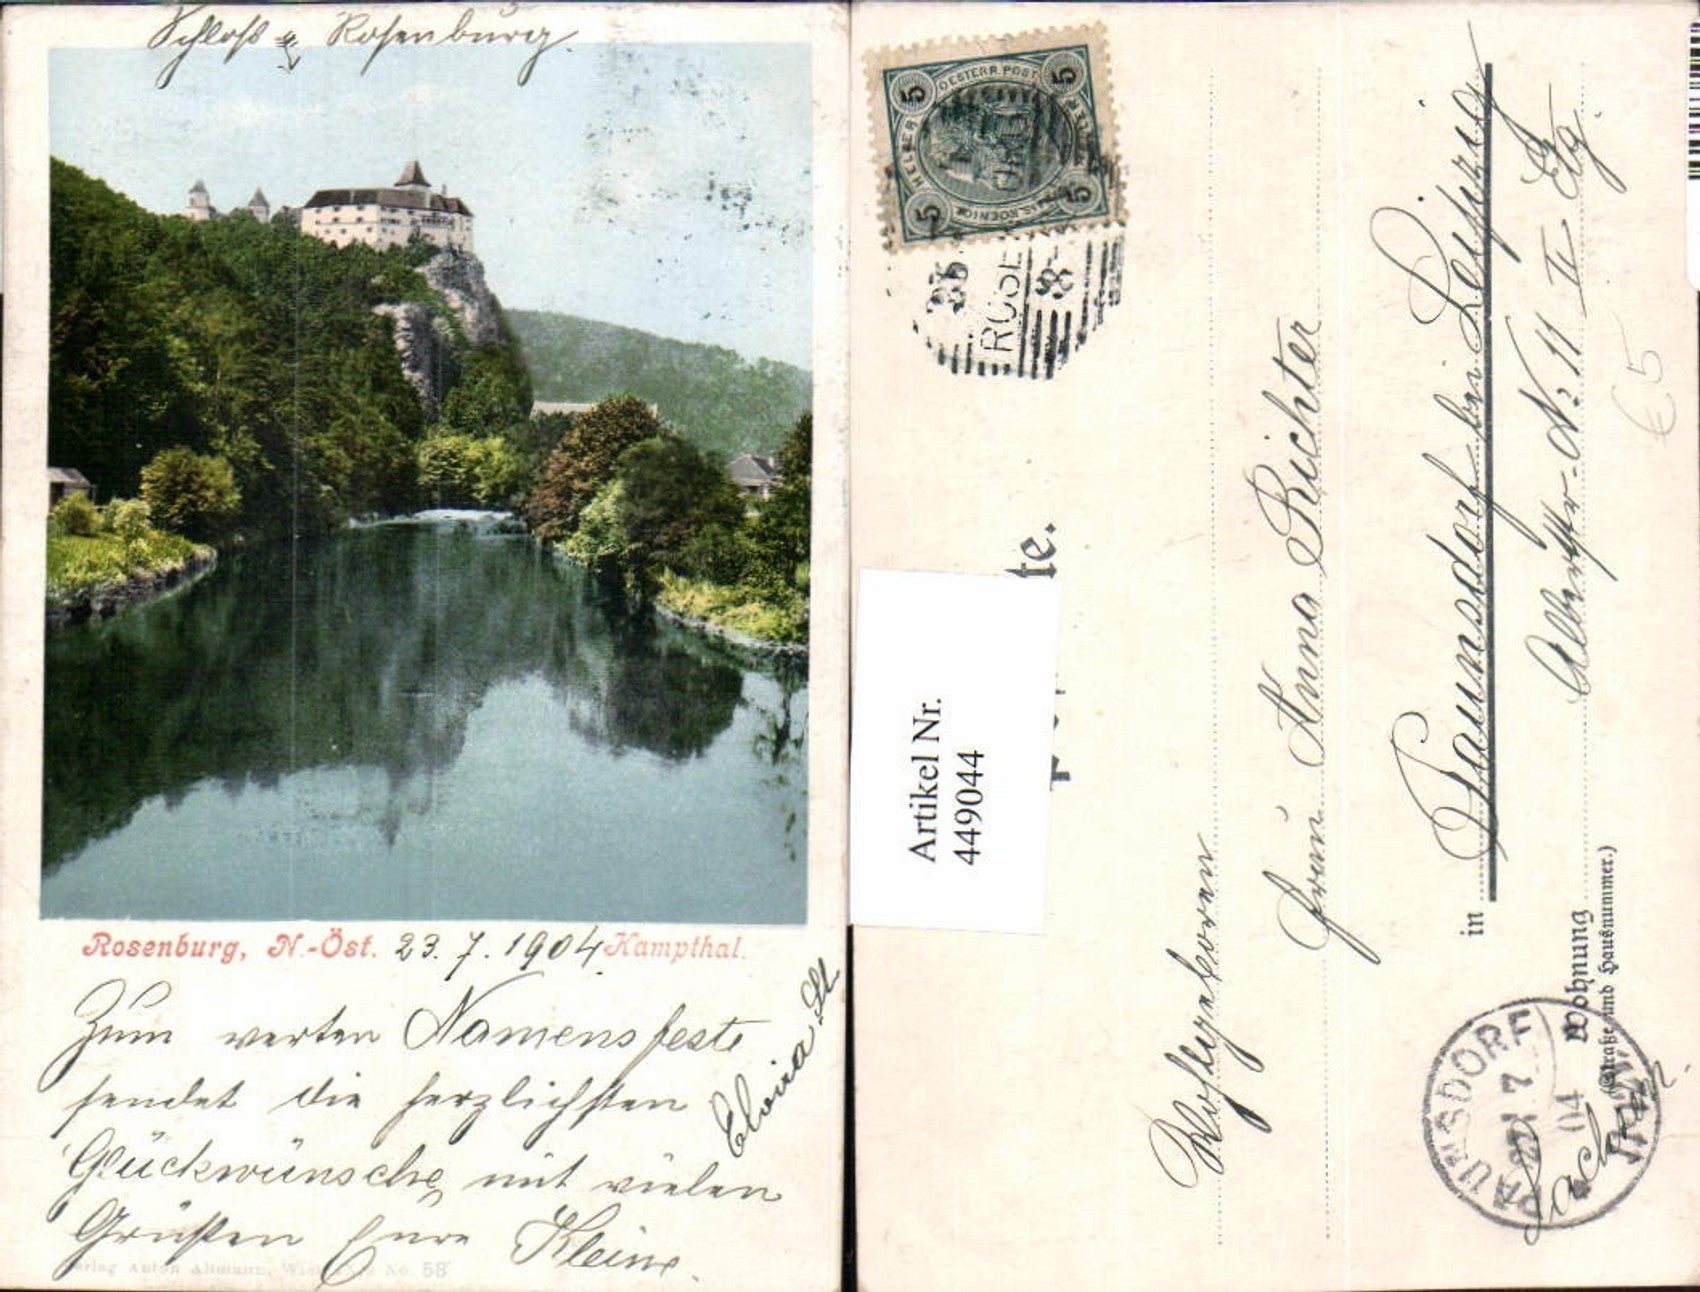 Schloß Rosenburg.
Rosenburg, N.-Öst. 23. 7. 1904 Kampthal.
Zum werten Namensfeste
sendet die herzlichsten
Glückwünsche mit vielen
Grüßen Eure Kleine.
Elvira St
Verlag Anton Altmann, No. 58
OESTERR. POST
KAISER
5 5 5 5
te.
Artikel Nr.
449044
Wohlgeboren
Frau Anna Richter
in Paunsdorf bei Leipzig
Wohnung Albertstr. Nr. 11 II Etg.
(Straße und Hausnummer.)
Sachsen.
PAUNSDORF
7
04
€ 5